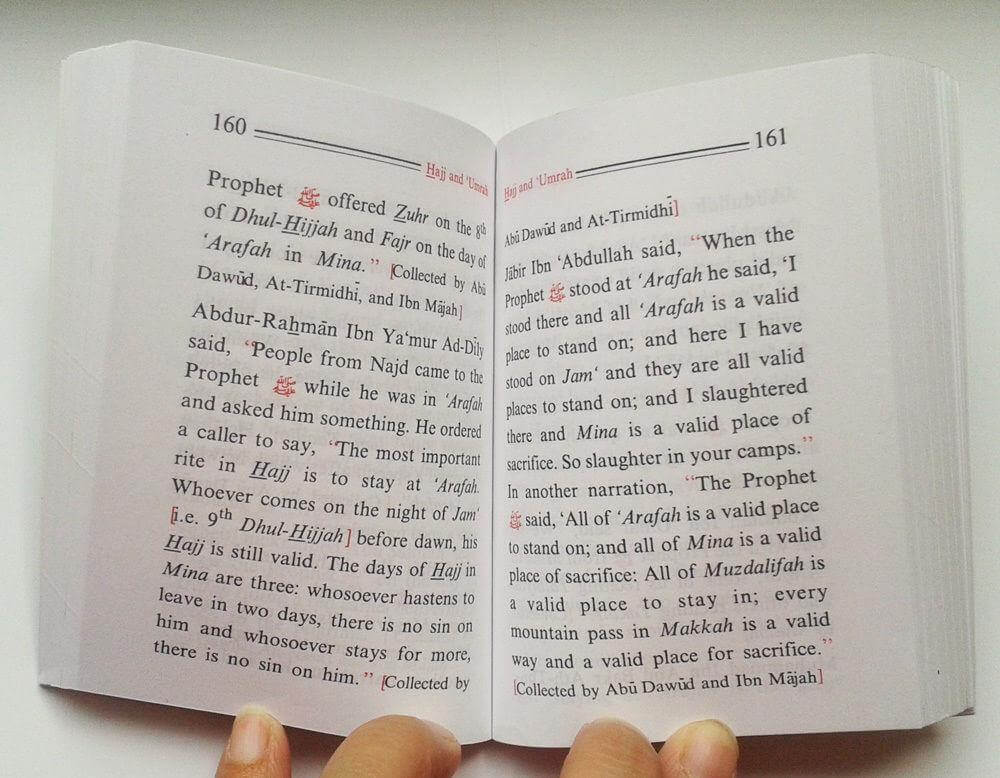 160
Hajj and ‘Umrah
Prophet ﷺ offered Zuhr on the 8th
of Dhul-Hijjah and Fajr on the day of
‘Arafah in Mina.” [Collected by Abū
Dawūd, At-Tirmidhī, and Ibn Mājah]
Abdur-Rahmān Ibn Ya‘mur Ad-Dīly
said, “People from Najd came to the
Prophet ﷺ while he was in ‘Arafah
and asked him something. He ordered
a caller to say, “The most important
rite in Hajj is to stay at ‘Arafah.
Whoever comes on the night of Jam‘
[i.e. 9th Dhul-Hijjah] before dawn, his
Hajj is still valid. The days of Hajj in
Mina are three: whosoever hastens to
leave in two days, there is no sin on
him and whosoever stays for more,
there is no sin on him.” [Collected by
161
Hajj and ‘Umrah
Abū Dawūd and At-Tirmidhī]
Jābir Ibn ‘Abdullah said, “When the
Prophet ﷺ stood at ‘Arafah he said, ‘I
stood there and all ‘Arafah is a valid
place to stand on; and here I have
stood on Jam‘ and they are all valid
places to stand on; and I slaughtered
there and Mina is a valid place of
sacrifice. So slaughter in your camps.”
In another narration, “The Prophet
ﷺ said, ‘All of ‘Arafah is a valid place
to stand on; and all of Mina is a valid
place of sacrifice: All of Muzdalifah is
a valid place to stay in; every
mountain pass in Makkah is a valid
way and a valid place for sacrifice.”
[Collected by Abū Dawūd and Ibn Mājah]